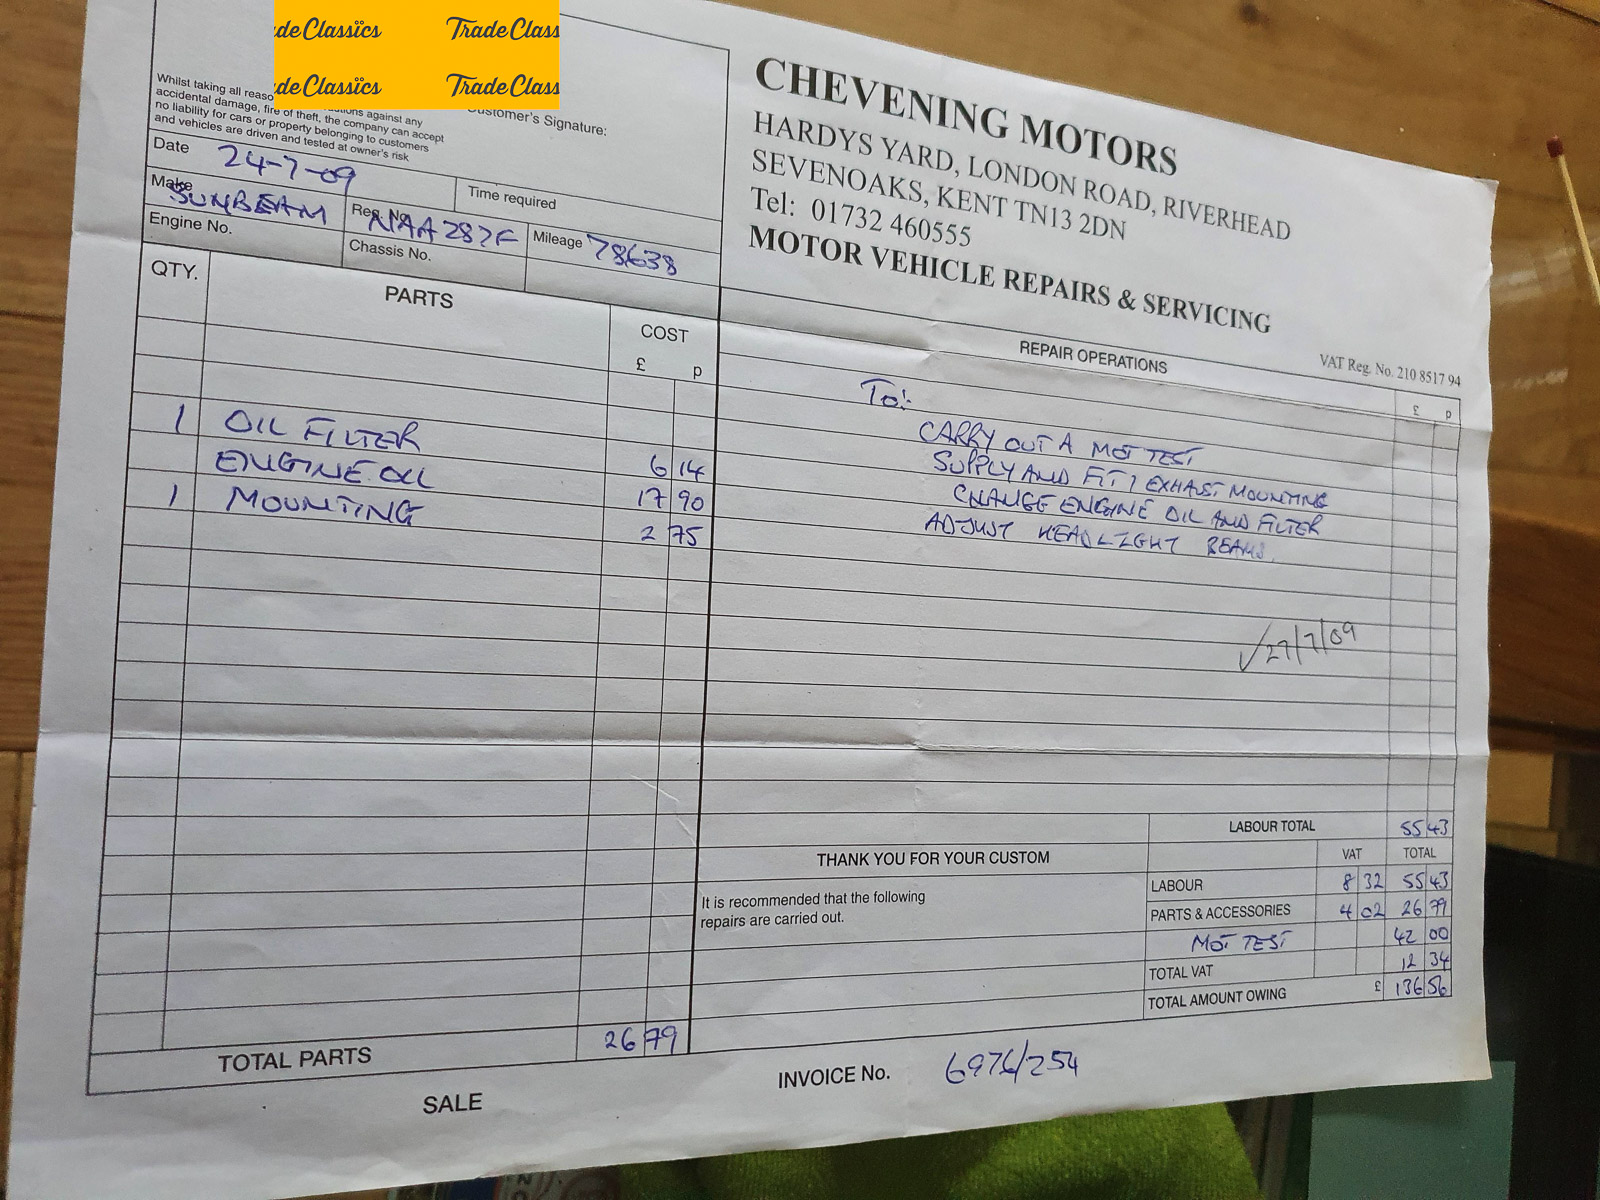 deClassics TradeClass
deClassics TradeClass
Whilst taking all reaso
accidental damage, fire of theft, the company can accept
no liability for cars or property belonging to customers
and vehicles are driven and tested at owner's risk
against any
Customer's Signature:
Date 24-7-09
Time required
Make SUNBEAM
Reg. No. NAA 287F
Mileage 78638
Engine No.
Chassis No.
CHEVENING MOTORS
HARDYS YARD, LONDON ROAD, RIVERHEAD
SEVENOAKS, KENT TN13 2DN
Tel: 01732 460555
MOTOR VEHICLE REPAIRS & SERVICING
VAT Reg. No. 210 8517 94
QTY. PARTS COST
£ p
1 OIL FILTER 6 14
ENGINE OIL 17 90
1 MOUNTING 2 75
TOTAL PARTS 26 79
REPAIR OPERATIONS £ p
To:-
CARRY OUT A MOT TEST
SUPPLY AND FIT 1 EXHAUST MOUNTING
CHANGE ENGINE OIL AND FILTER
ADJUST HEADLIGHT BEAMS.
✓27/7/09
LABOUR TOTAL 55 43
THANK YOU FOR YOUR CUSTOM
VAT TOTAL
It is recommended that the following
repairs are carried out.
LABOUR 8 32 55 43
PARTS & ACCESSORIES 4 02 26 79
MOT TEST 42 00
TOTAL VAT 12 34
TOTAL AMOUNT OWING £ 136 56
SALE
INVOICE No. 6976/254